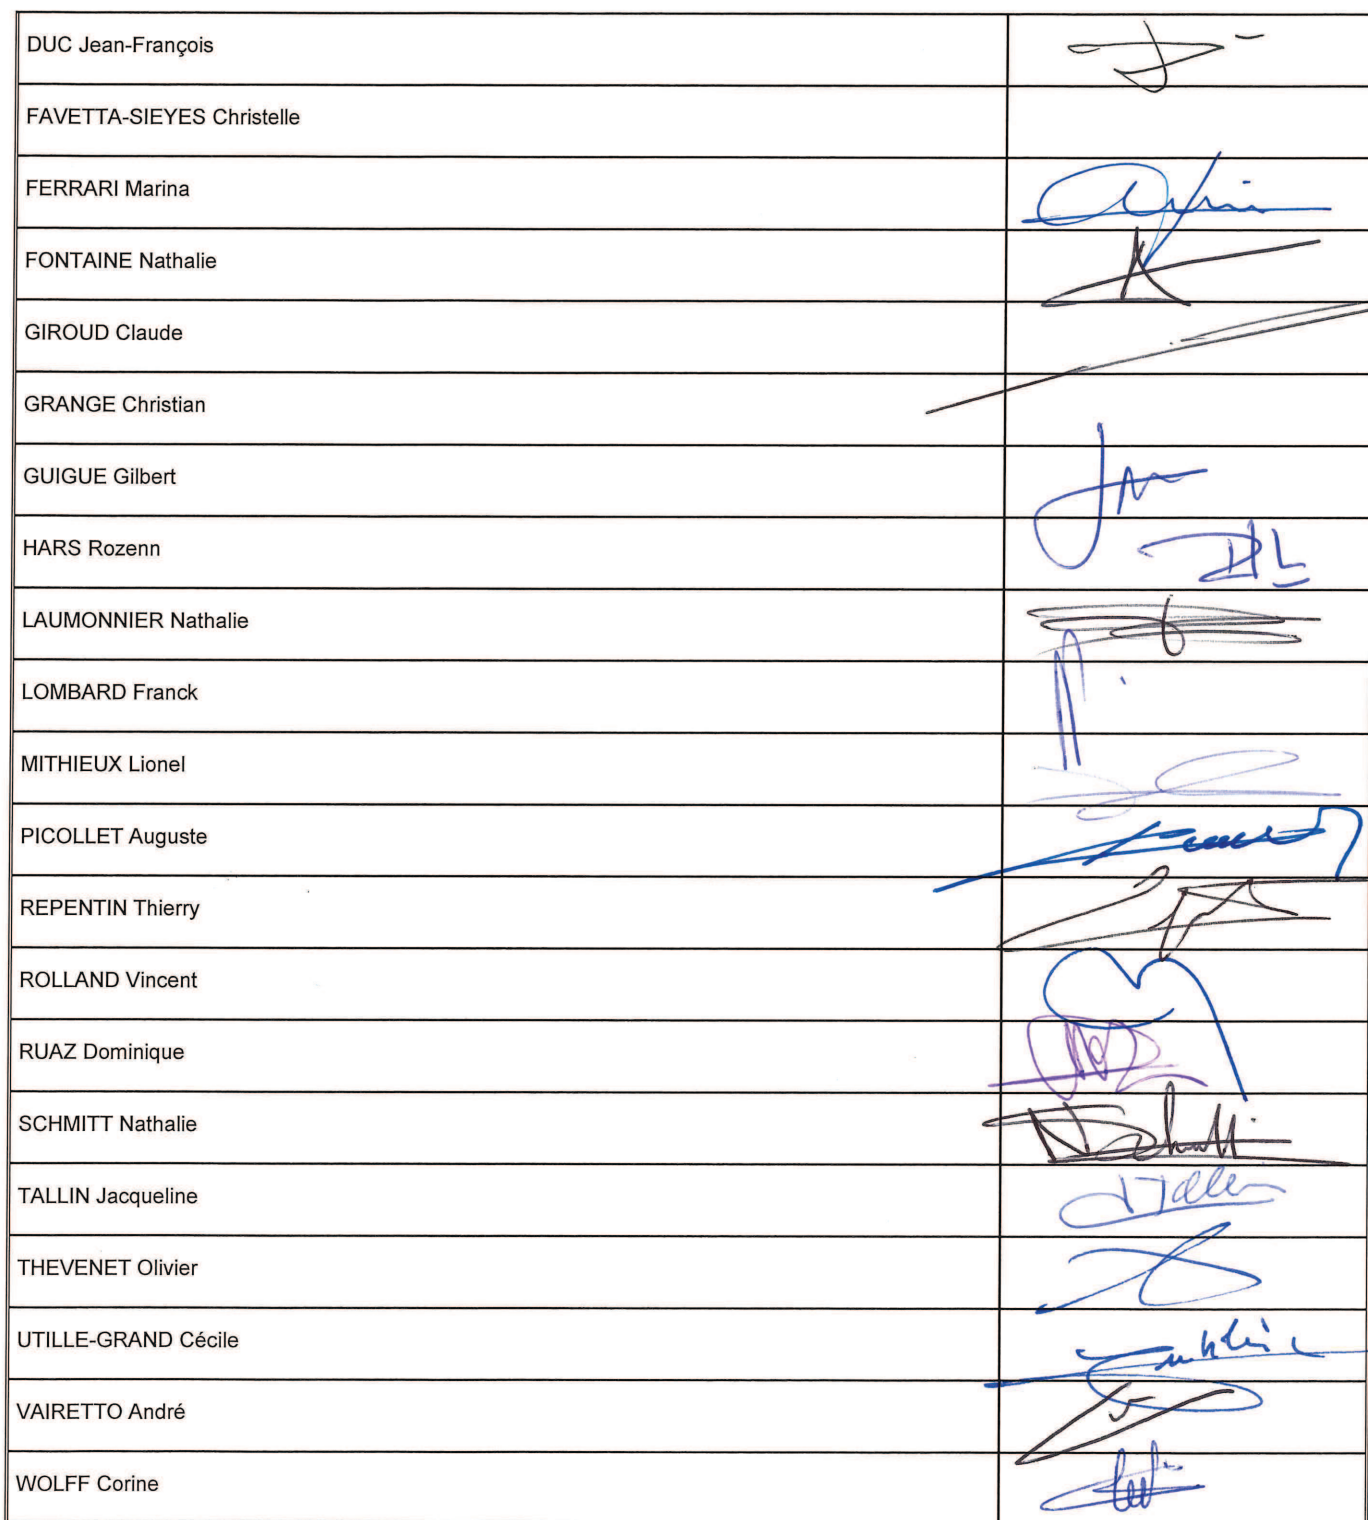 DUC Jean-François
FAVETTA-SIEYES Christelle
FERRARI Marina
FONTAINE Nathalie
GIROUD Claude
GRANGE Christian
GUIGUE Gilbert
HARS Rozenn
LAUMONNIER Nathalie
LOMBARD Franck
MITHIEUX Lionel
PICOLLET Auguste
REPENTIN Thierry
ROLLAND Vincent
RUAZ Dominique
SCHMITT Nathalie
TALLIN Jacqueline
THEVENET Olivier
UTILLE-GRAND Cécile
VAIRETTO André
WOLFF Corine